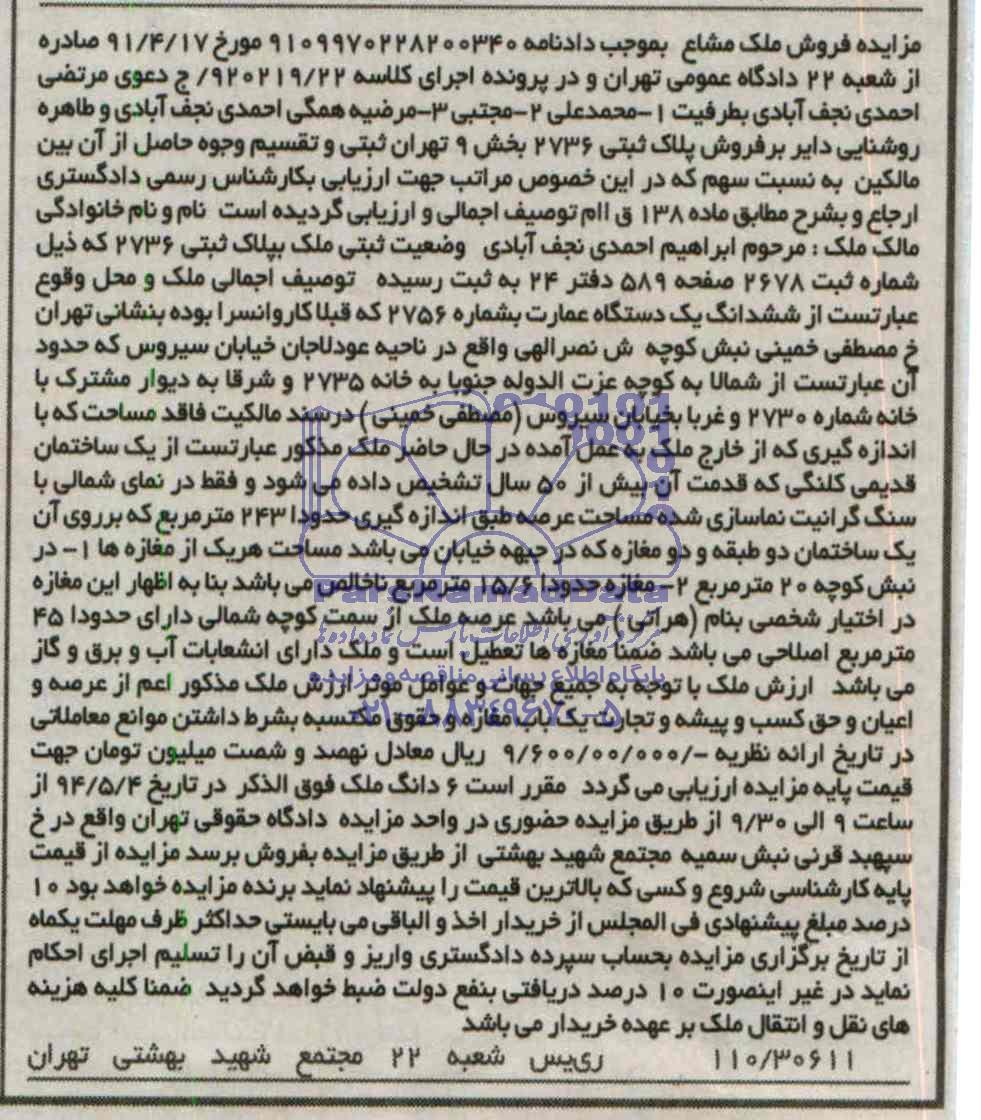 مزایده فروش ملک مشاع بموجب دادنامه ۹۱۰۹۹۷۰۲۲۸۲۰۰۳۴۰ مورخ ۹۱/۴/۱۷ صادره
از شعبه ۲۲ دادگاه عمومی تهران و در پرونده اجرای کلاسه ۹۲۰۲۱۹/۲۲/ ج دعوی مرتضی
احمدی نجف آبادی بطرفیت ۱-محمدعلی ۲-مجتبی ۳-مرضیه همگی احمدی نجف آبادی و طاهره
روشنایی دایر برفروش پلاک ثبتی ۲۷۳۶ بخش ۹ تهران ثبتی و تقسیم وجوه حاصل از آن بین
مالکین به نسبت سهم که در این خصوص مراتب جهت ارزیابی بکارشناس رسمی دادگستری
ارجاع و بشرح مطابق ماده ۱۳۸ ق اام توصیف اجمالی و ارزیابی گردیده است نام و نام خانوادگی
مالک ملک : مرحوم ابراهیم احمدی نجف آبادی وضعیت ثبتی ملک بپلاک ثبتی ۲۷۳۶ که ذیل
شماره ثبت ۲۶۷۸ صفحه ۵۸۹ دفتر ۲۴ به ثبت رسیده توصیف اجمالی ملک و محل وقوع
عبارتست از ششدانگ یک دستگاه عمارت بشماره ۲۷۵۶ که قبلا کاروانسرا بوده بنشانی تهران
خ مصطفی خمینی نبش کوچه ش نصرالهی واقع در ناحیه عودلاجان خیابان سیروس که حدود
آن عبارتست از شمالا به کوچه عزت الدوله جنوبا به خانه ۲۷۳۵ و شرقا به دیوار مشترک با
خانه شماره ۲۷۳۰ و غربا بخیابان سیروس (مصطفی خمینی) درسند مالکیت فاقد مساحت که با
اندازه گیری که از خارج ملک به عمل آمده در حال حاضر ملک مذکور عبارتست از یک ساختمان
قدیمی کلنگی که قدمت آن بیش از ۵۰ سال تشخیص داده می شود و فقط در نمای شمالی با
سنگ گرانیت نماسازی شده مساحت عرصه طبق اندازه گیری حدودا ۲۴۳ مترمربع که برروی آن
یک ساختمان دو طبقه و دو مغازه که در جبهه خیابان می باشد مساحت هریک از مغازه ها ۱- در
نبش کوچه ۲۰ مترمربع ۲- مغازه حدودا ۱۵/۶ مترمربع ناخالص می باشد بنا به اظهار این مغازه
در اختیار شخصی بنام (هراتی) می باشد عرصه ملک از سمت کوچه شمالی دارای حدودا ۴۵
مترمربع اصلاحی می باشد ضمنا مغازه ها تعطیل است و ملک دارای انشعابات آب و برق و گاز
می باشد ارزش ملک با توجه به جمیع جهات و عوامل موثر ارزش ملک مذکور اعم از عرصه و
اعیان و حق کسب و پیشه و تجارت یک باب مغازه و حقوق مکتسبه بشرط داشتن موانع معاملاتی
در تاریخ ارائه نظریه -/۹/۶۰۰/۰۰/۰۰۰ ریال معادل نهصد و شصت میلیون تومان جهت
قیمت پایه مزایده ارزیابی می گردد مقرر است ۶ دانگ ملک فوق الذکر در تاریخ ۹۴/۵/۴ از
ساعت ۹ الی ۹/۳۰ از طریق مزایده حضوری در واحد مزایده دادگاه حقوقی تهران واقع در خ
سپهبد قرنی نبش سمیه مجتمع شهید بهشتی از طریق مزایده بفروش برسد مزایده از قیمت
پایه کارشناسی شروع و کسی که بالاترین قیمت را پیشنهاد نماید برنده مزایده خواهد بود ۱۰
درصد مبلغ پیشنهادی فی المجلس از خریدار اخذ و الباقی می بایستی حداکثر ظرف مهلت یکماه
از تاریخ برگزاری مزایده بحساب سپرده دادگستری واریز و قبض آن را تسلیم اجرای احکام
نماید در غیر اینصورت ۱۰ درصد دریافتی بنفع دولت ضبط خواهد گردید ضمنا کلیه هزینه
های نقل و انتقال ملک بر عهده خریدار می باشد
۱۱۰/۳۰۶۱۱ ری‌یس شعبه ۲۲ مجتمع شهید بهشتی تهران
ParsNamadData
پایگاه اطلاع رسانی مناقصه و مزایده
۰۲۱-۸۸۳۴۹۶۷۰-۵